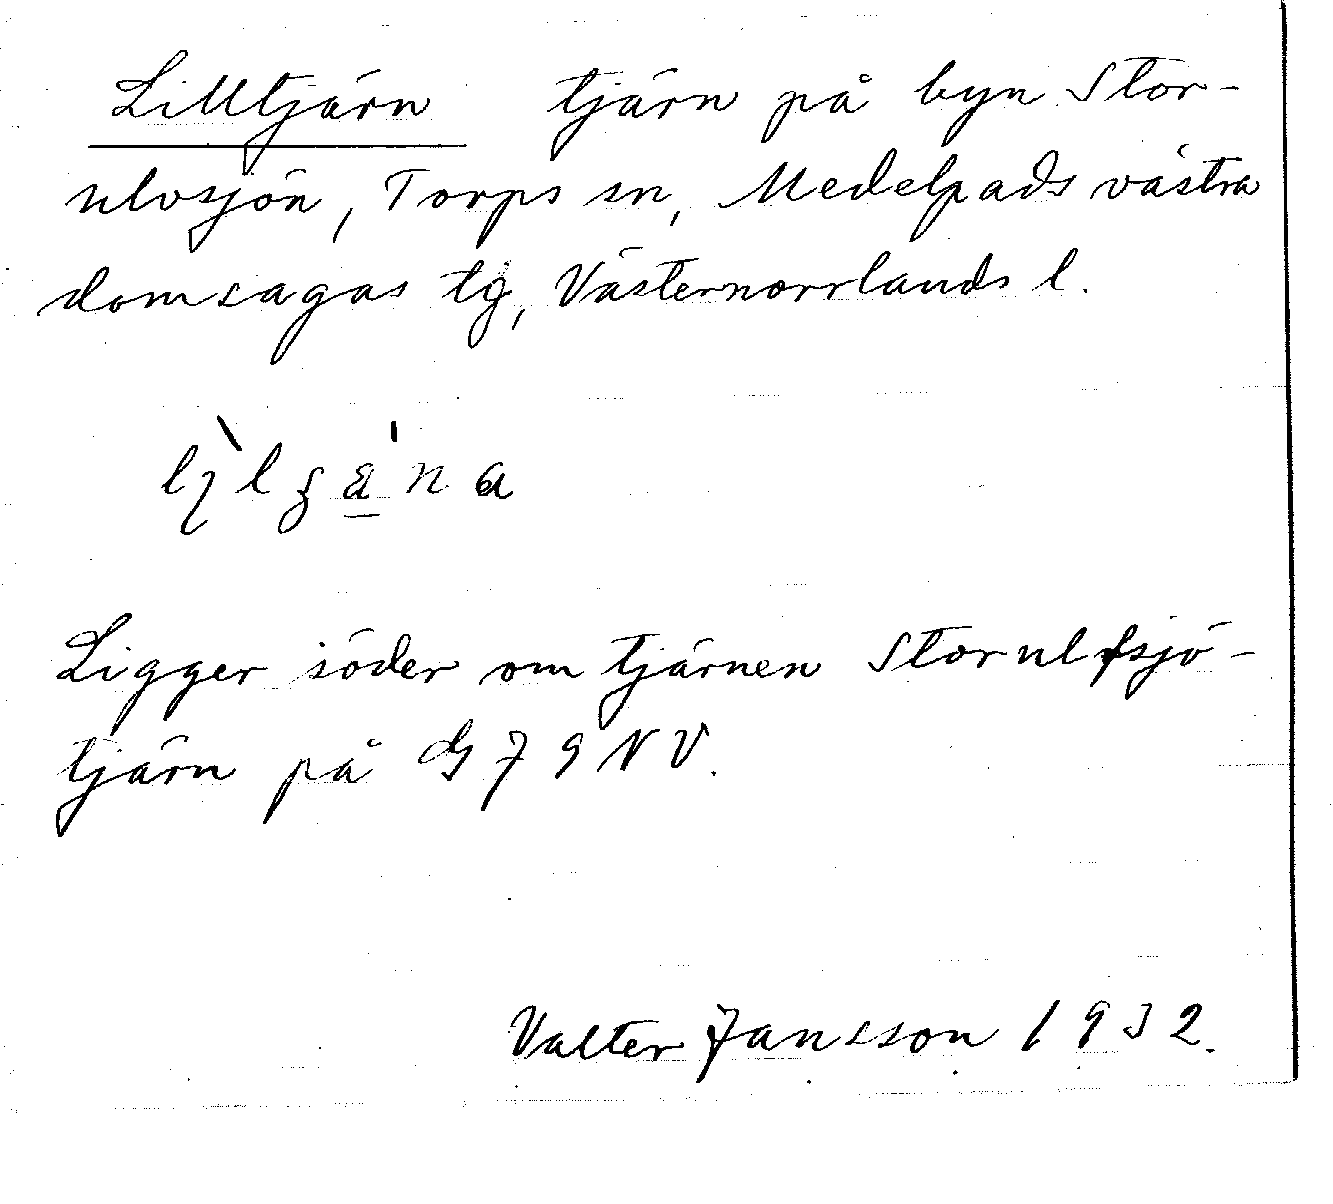 Lilltjärn tjärn på byn Stor-
ulvsjön, Torps sn, Medelpads västra
domsagas tg, Västernorrlands l.
Ligger söder om tjärnen Storulfsjö-
tjärn på G79NV.
Valter Jansson 1932.